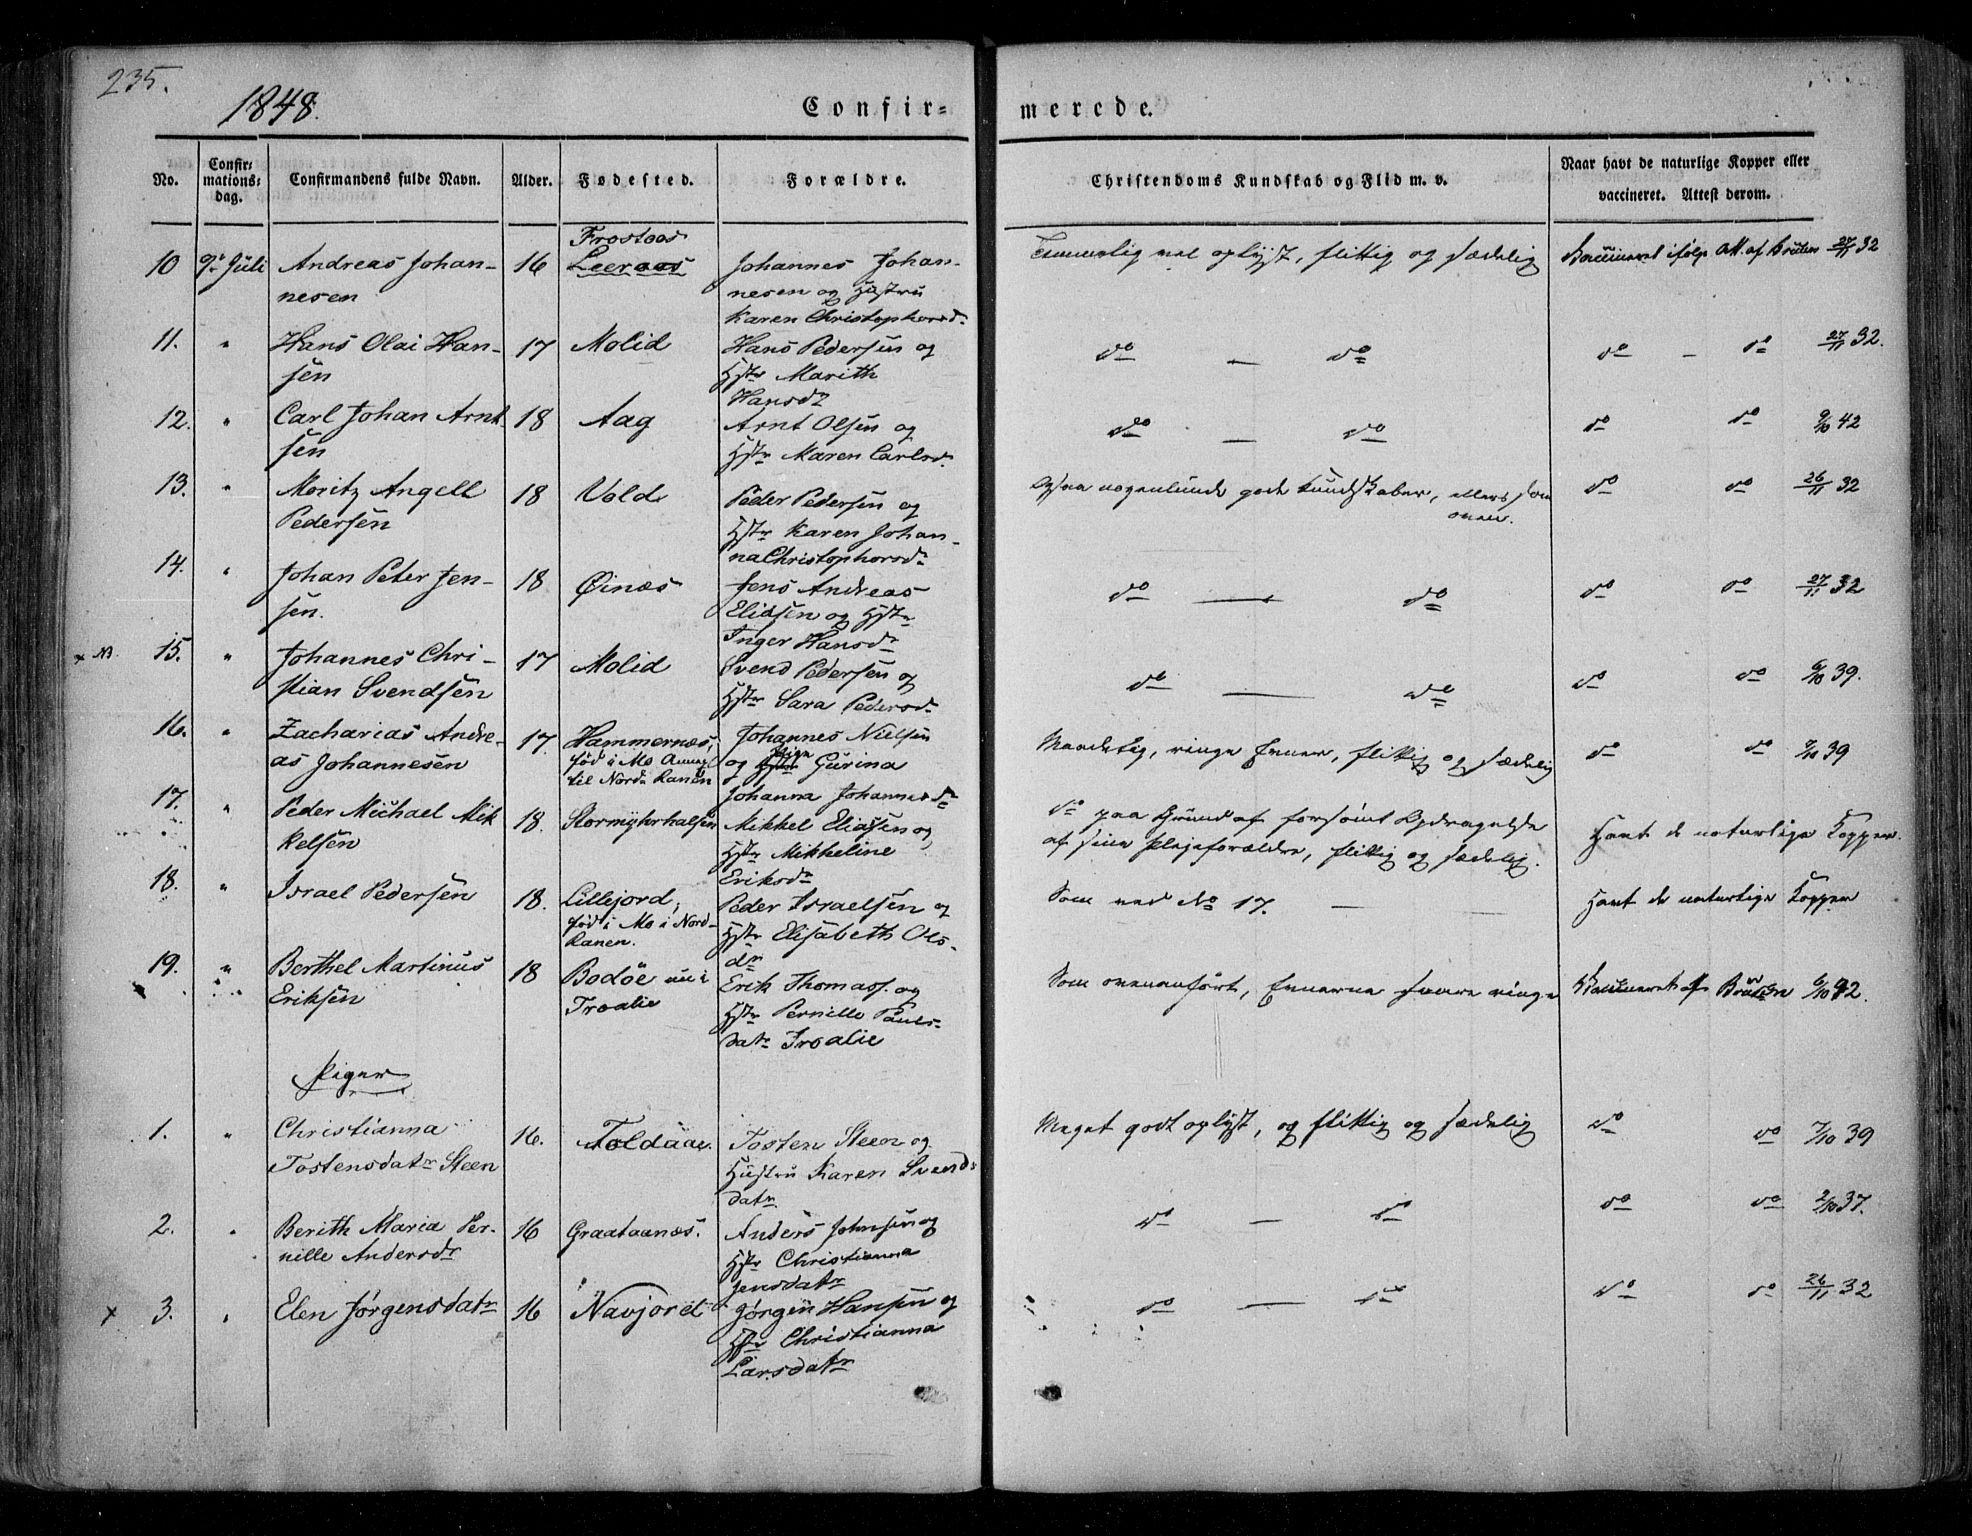 235.
1848.
Confir=
merede.
No.
Confir=
mations=
dag.
Confirmandens fulde Navn.
Alder.
Fødested.
Forældre.
Christendoms Kundskab og Flid m. v.
Naar havt de naturlige Kopper eller
vaccineret. Attest derom.
10 9de Juli Andreas Johan-
nesen
16
Frostaas
Leeraas
Johannes Johan-
nesen og Hustru
Karen Christophersd.
Temmelig vel oplyst, flittig og sædelig
Vaccineret ifølge Att. af 27/11 32
11. " Hans Olai Han-
sen
17 Molid
Hans Pedersen og
Hstr Marith
Hansdr
do — do
do — do 27/11 32.
12. " Carl Johan Arnt
sen
18 Aag
Arnt Olsen og
Hstr Maren Carlsd.
do — do
do do 9/10 42
13. " Moritz Angell
Pedersen
18 Vold
Peder Pedersen og
Hstr Karen Johan-
na Christophersdr
Ogsaa nogenlunde gode Kundskaber, ellers som
oven.
do do 26/11 32
14. " Johan Peter Jen-
sen.
18 Øinæs
Jens Andreas
Eliasen og Hstr
Inger Hansdr
do — do
do do 27/11 32
x NB. 15. " Johannes Chri-
stian Svendsen
17 Molid
Svend Pedersen og
Hstr Sara Pedersdr
do — do
do do 6/10 39.
16. " Zacharias Andre-
as Johannesen
17. Hammernæs,
fød i Mo Annex
til Nord Ranen
Johannes Nielsen
og Pige Gurina
Johanna Johannesdr
Maadelig, ringe Evner, flittig og sædelig
do do 7/10 39
17. " Peder Michael Mik
kelsen
18. Stormyhrhalsen
Mikkel Eliasen og
Hstr Mikkeline
Eriksdr
do paa Grund af forsømt Opdragelse
af sine Plejeforældre, flittig og sædelig.
Havt de naturlige Kopper.
18. " Israel Pedersen
18. Lillejord,
fød i Mo i Nord-
Ranen.
Peder Israelsen og
Hstr Elisabeth Ols-
dr
Som ved No 17. —
Havt de naturlige Kopper
19. " Berthel Martinus
Eriksen
18 Bodøe nu i
Troalie
Erik Thomass. og
Hstr Pernille Pauls-
datr Troalie
Som ovenanført, Evnerne svare ringe
Vaccineret af 6/10 42.
Piger
1. " Christianna
Tostensdatr Steen
16. Toldaae.
Tosten Steen og
Hustru Karen Svends
datr
Meget godt oplyst, og flittig og sædelig
do do 7/10 39
2. " Berith Maria Per-
nille Andersdr
16 Graataanæs.
Anders Johnsen og
Hstr Christianna
Jensdatr
do — do
do do 2/10 37.
x 3. " Elen Jørgensdatr
16 Navjord
Jørgen Hansen og
Hstr Christianna
Larsdatr
do — do
do do 26/11 32